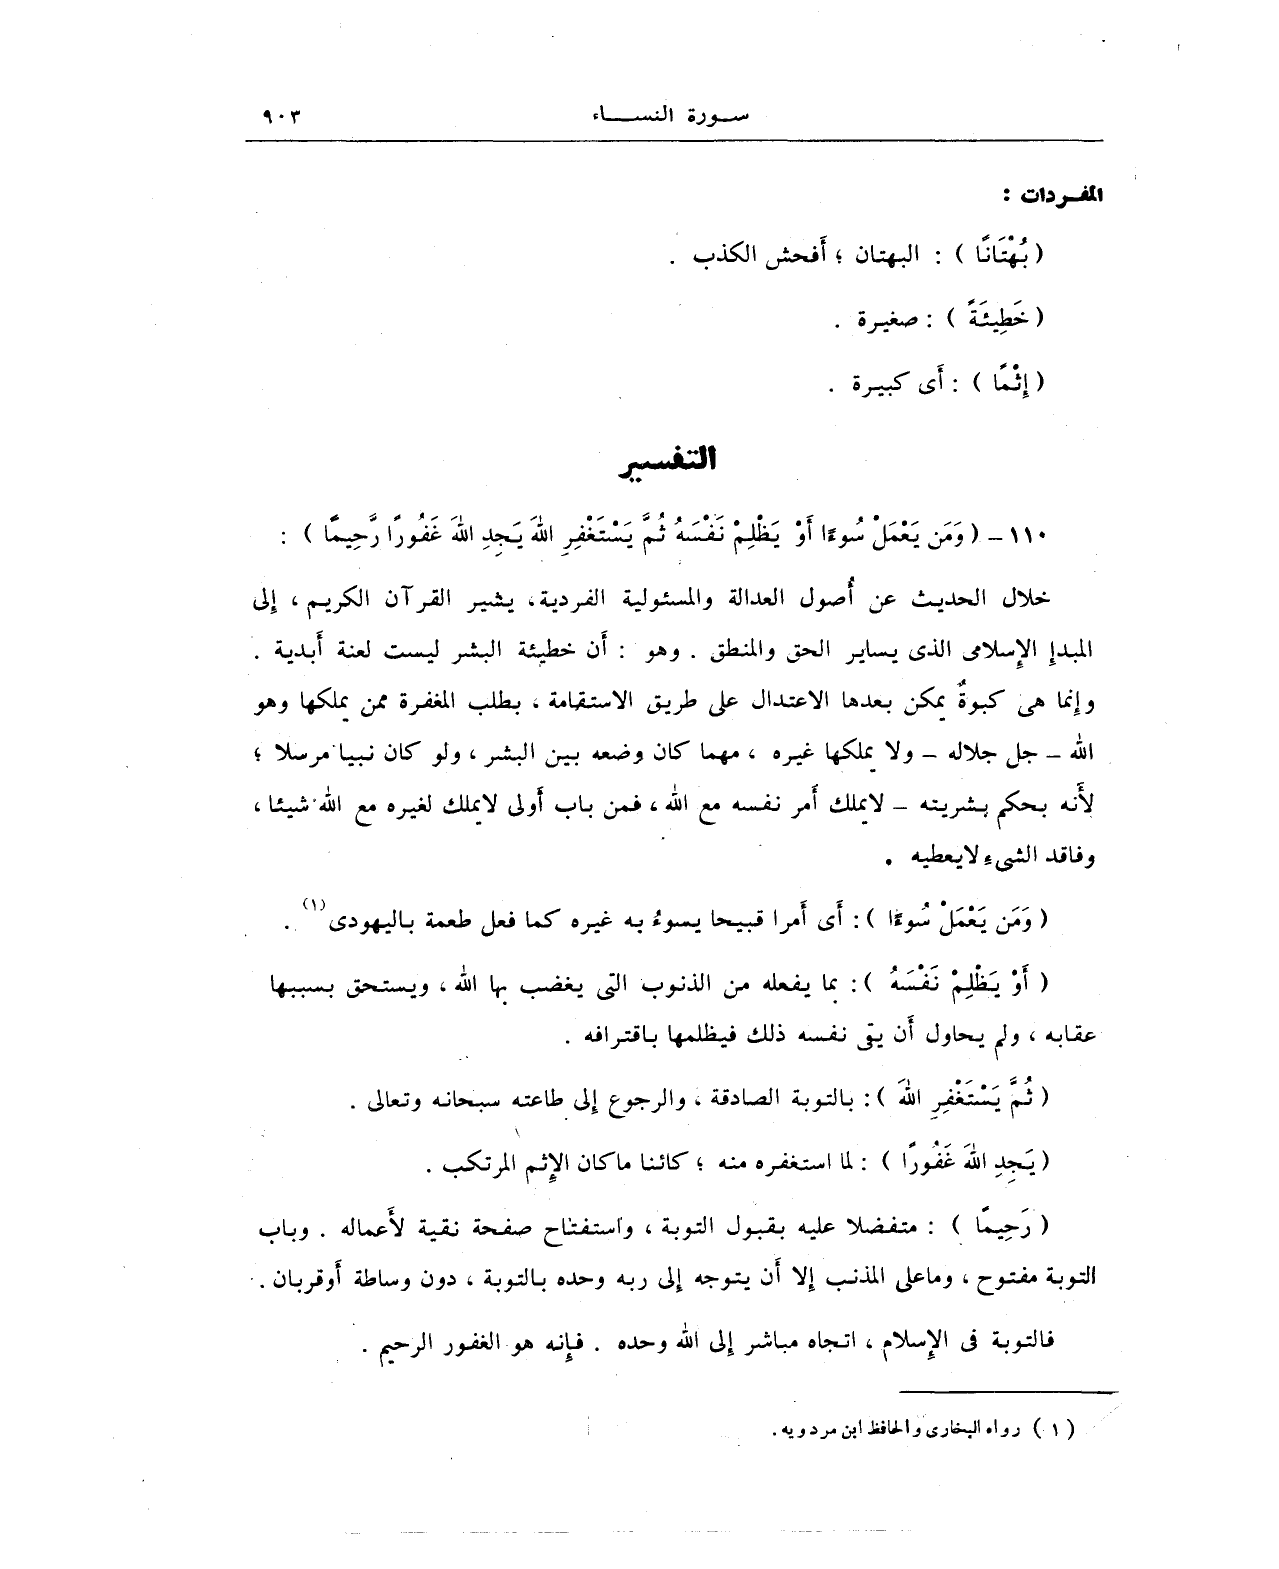 سـورة النســاء ٩٠٣
المفـردات :
( بُهْتَانًا ) : البهتان ؛ أَفحش الكذب .
( خَطِيئَةً ) : صغيرة .
( إِثْمًا ) : أَى كبيرة .
التفسير
١١٠ – ( وَمَن يَعْمَلْ سُوءًا أَوْ يَظْلِمْ نَفْسَهُ ثُمَّ يَسْتَغْفِرِ اللهَ يَجِدِ اللهَ غَفُورًا رَّحِيمًا ) :
خلال الحديث عن أُصول العدالة والمسئولية الفردية، يشير القرآن الكريم ، إِلى
المبدإِ الإِسلامى الذى يساير الحق والمنطق . وهو : أَن خطيئة البشر ليست لعنة أَبدية .
وإِنما هى كبوةٌ يمكن بعدها الاعتدال على طريق الاستقامة ، بطلب المغفرة ممن يملكها وهو
الله – جل جلاله – ولا يملكها غيره ، مهما كان وضعه بين البشر ، ولو كان نبيا مرسلا ؛
لأَنه بحكم بشريته – لايملك أَمر نفسه مع الله ، فمن باب أَولى لايملك لغيره مع الله شيئا ،
وفاقد الشىء لايعطيه .
( وَمَن يَعْمَلْ سُوءًا ) : أَى أَمرا قبيحا يسوءُ به غيره كما فعل طعمة باليهودى(١) .
( أَوْ يَظْلِمْ نَفْسَهُ ) : بما يفعله من الذنوب التى يغضب بها الله ، ويستحق بسببها
عقابه ، ولم يحاول أَن يقى نفسه ذلك فيظلمها باقترافه .
( ثُمَّ يَسْتَغْفِرِ اللهَ ) : بالتوبة الصادقة ، والرجوع إِلى طاعته سبحانه وتعالى .
( يَجِدِ اللهَ غَفُورًا ) : لما استغفره منه ؛ كائنا ماكان الإِثم المرتكب .
( رَحِيمًا ) : متفضلا عليه بقبول التوبة ، واستفتاح صفحة نقية لأَعماله . وباب
التوبة مفتوح ، وماعلى المذنب إِلا أَن يتوجه إِلى ربه وحده بالتوبة ، دون وساطة أَوقربان .
فالتوبة فى الإِسلام ، اتجاه مباشر إِلى الله وحده . فإِنه هو الغفور الرحيم .
( ١ ) رواه البخارى والحافظ ابن مردويه .